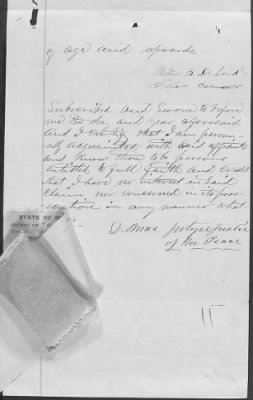 of age and upwards
Subscribed and Sworn to before
me the day and year aforesaid
And I certify that I am person-
ally acquainted with said affiants
and know them to be persons
entitled to full faith and credit
that I have no interest in said
claim nor concerned in its pros-
ecution in any manner what
Justice
of the Peace
STATE OF